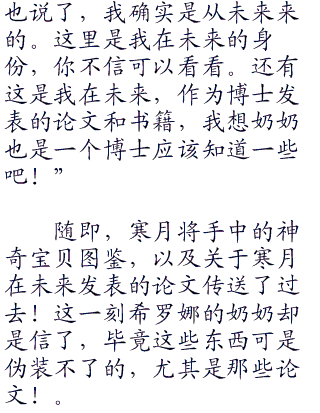 也说了，我确实是从未来来
的。这里是我在未来的身
份，你不信可以看看。还有
这是我在未来，作为博士发
表的论文和书籍，我想奶奶
也是一个博士应该知道一些
吧！”
随即，寒月将手中的神
奇宝贝图鉴，以及关于寒月
在未来发表的论文传送了过
去！这一刻希罗娜的奶奶却
是信了，毕竟这些东西可是
伪装不了的，尤其是那些论
文！。